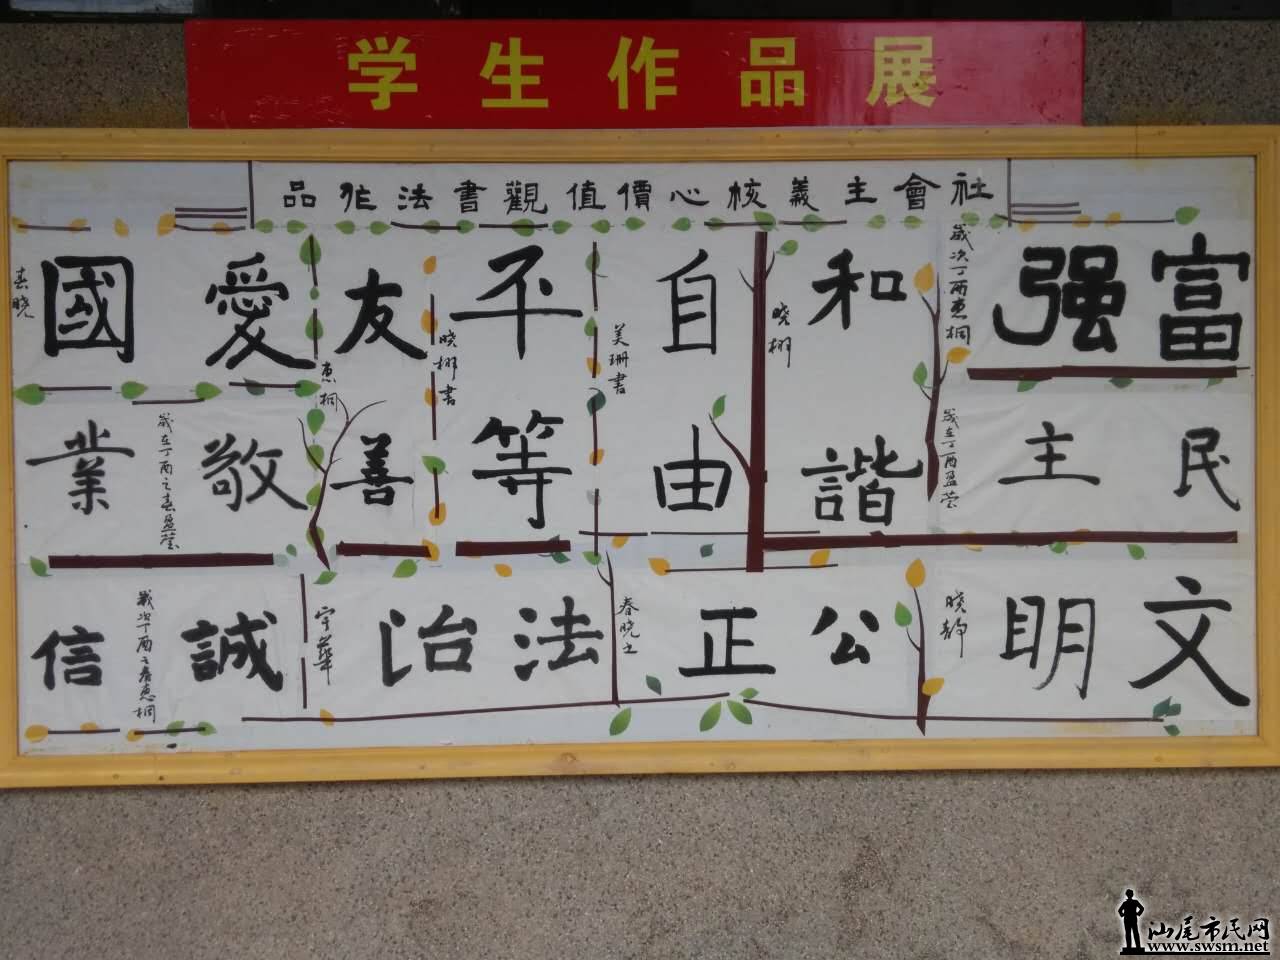 学生作品展
社會主義核心價值觀書法作品
富强
歲次丁酉惠桐
民主
歲在丁酉盈莹
文明
晓静
和諧
晓栩
自由
美珊書
公正
春晓
平等
晓栩書
法治
宇華
友善
惠桐
愛國
春晓
敬業
歲在丁酉之春盈莹
誠信
歲次丁酉之春惠桐
汕尾市民网
www.swsm.net